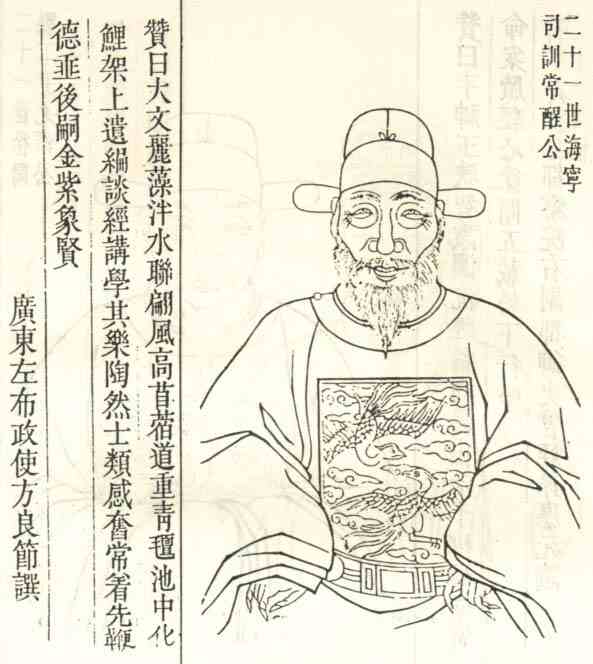 二十一世海寧
司訓常醒公
贊曰大文麗藻泮水聯翩風高苜蓿道重青氊池中化
鯉架上遺編談經講學其樂陶然士類感奮常著先鞭
德垂後嗣金紫象賢
廣東左布政使方良節譔